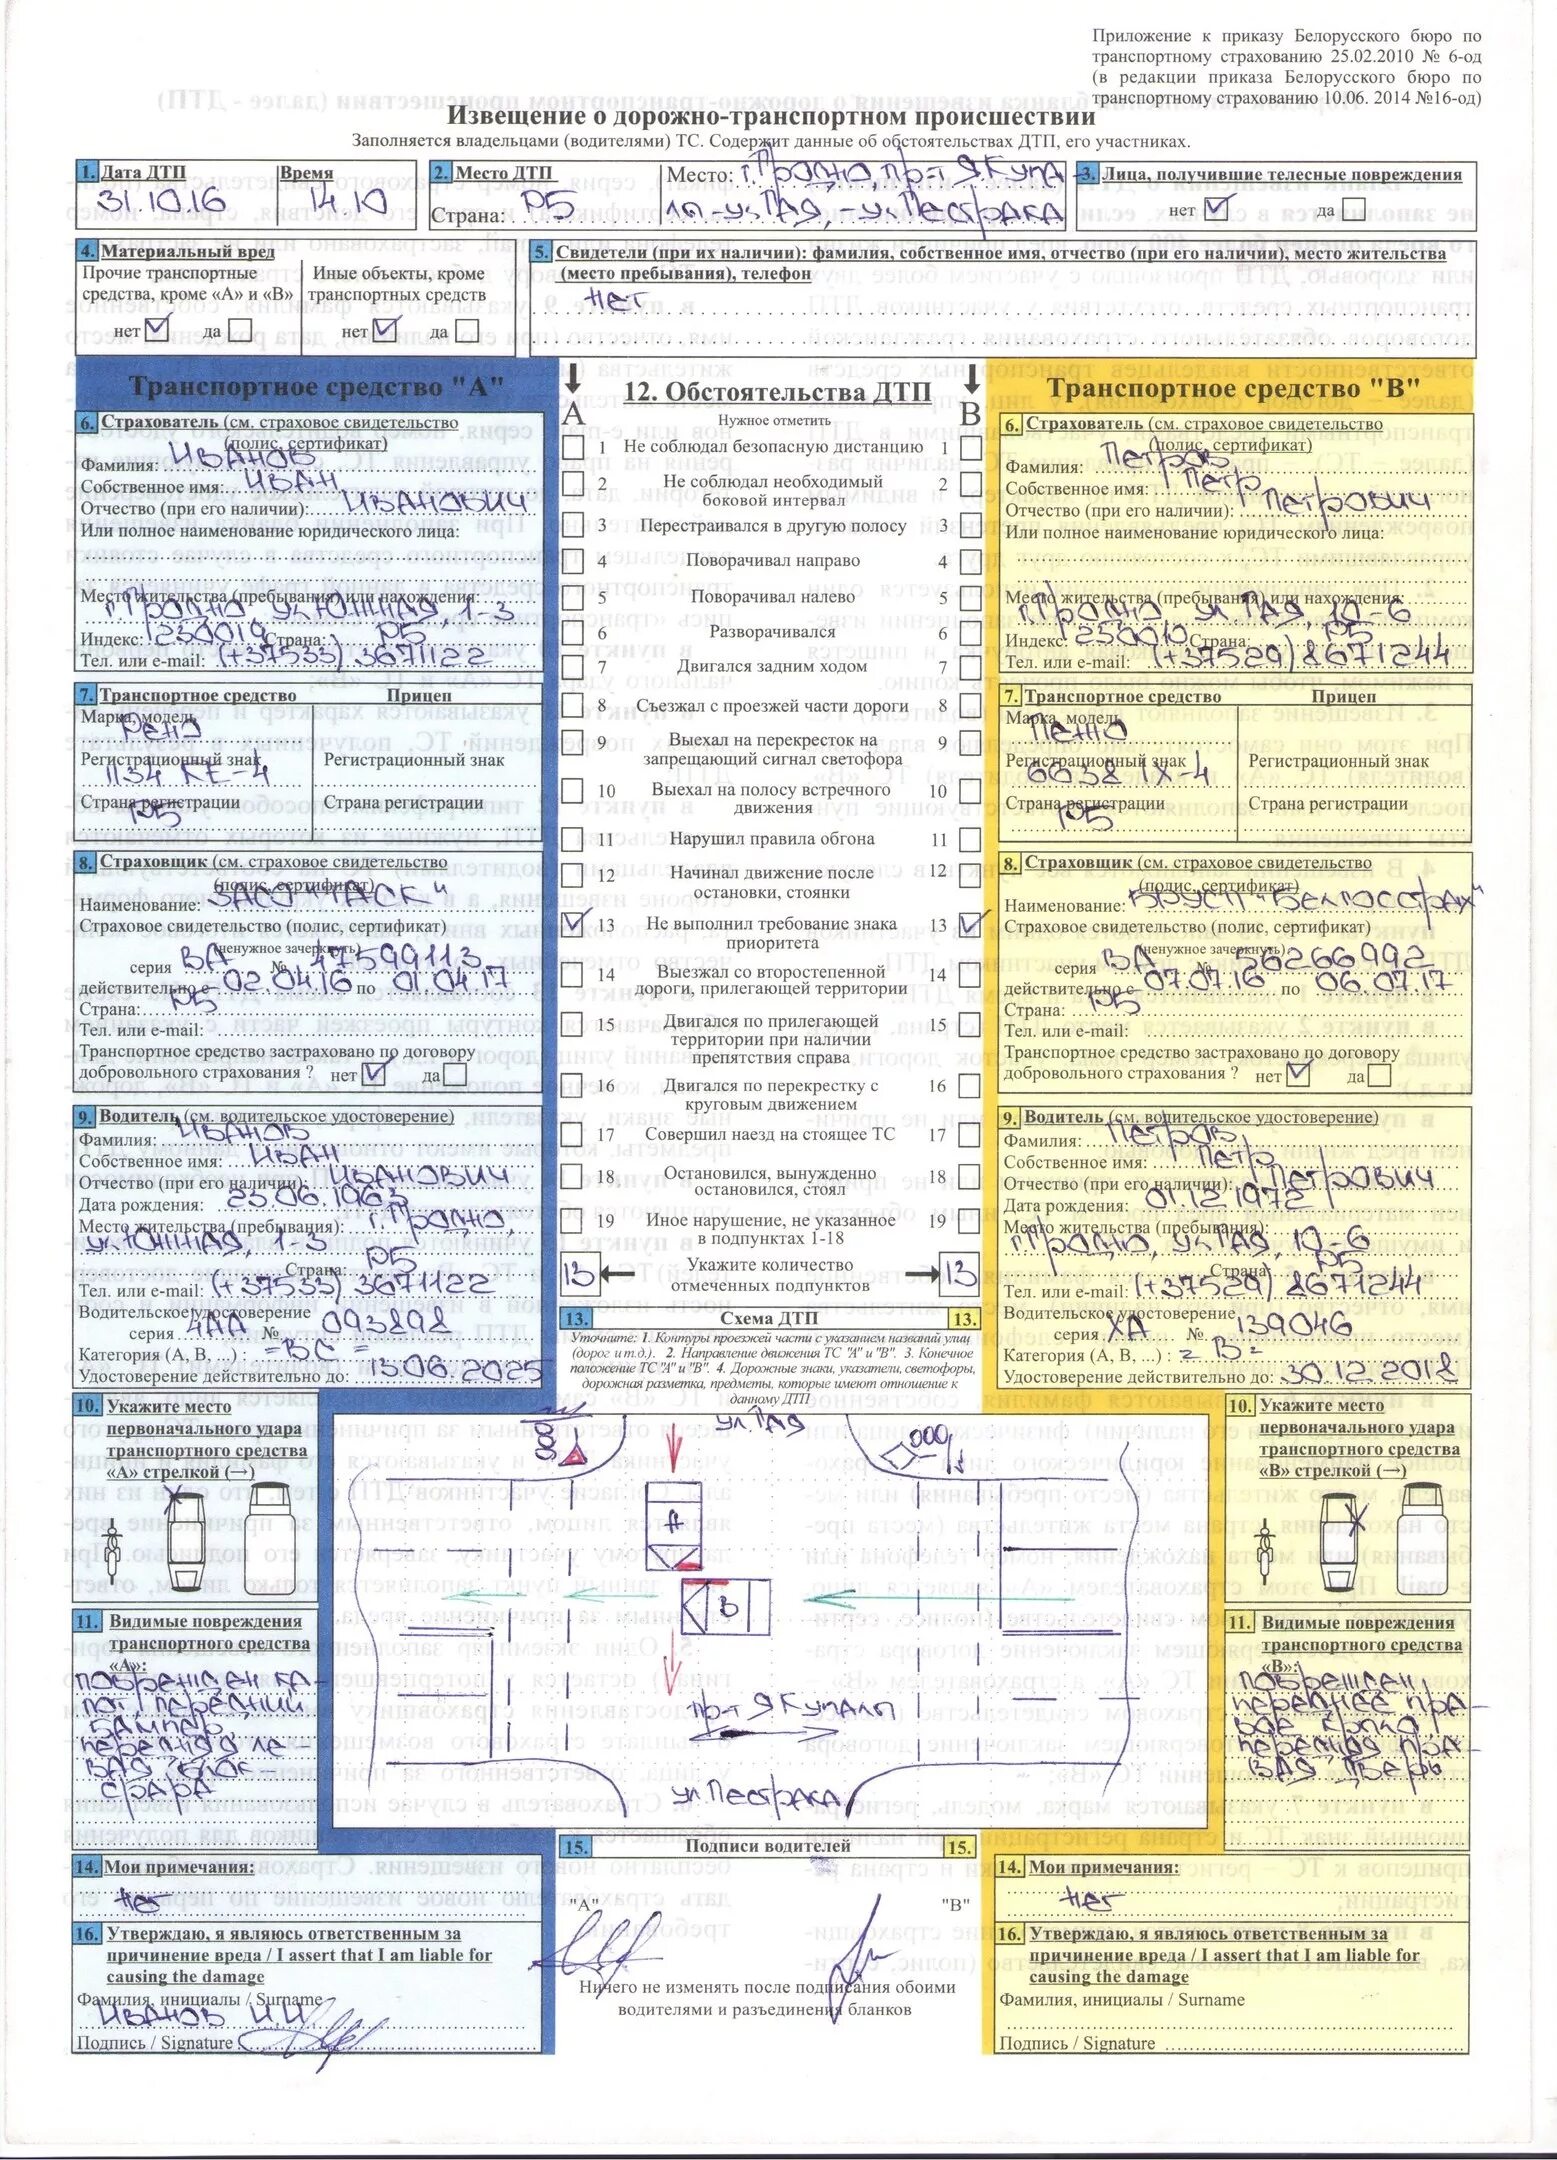 Приложение к приказу Белорусского бюро по
транспортному страхованию 25.02.2010 № 6-од
(в редакции приказа Белорусского бюро по
транспортному страхованию 10.06. 2014 №16-од)
Извещение о дорожно-транспортном происшествии
Заполняется владельцами (водителями) ТС. Содержит данные об обстоятельствах ДТП, его участниках.
1. Дата ДТП Время
31.10.16 14.10
2. Место ДТП
Страна: РБ
Место: г. Гродно, пр-т Я Купа
лы-ул.Гая, -ул.Пестрака
3. Лица, получившие телесные повреждения
нет да
4. Материальный вред
Прочие транспортные средства, кроме «А» и «В»
нет да
Иные объекты, кроме транспортных средств
нет да
5. Свидетели (при их наличии): фамилия, собственное имя, отчество (при его наличии), место жительства
(место пребывания), телефон
нет
Транспортное средство "А"
6. Страхователь (см. страховое свидетельство
(полис, сертификат)
Фамилия: Иванов
Собственное имя: Иван
Отчество (при его наличии): Иванович
Или полное наименование юридического лица:
Место жительства (пребывания) или нахождения:
г. Гродно ул. Южная 1-3
Индекс: 230019 Страна: РБ
Тел. или e-mail: (+37533) 3671122
7. Транспортное средство Прицеп
Марка, модель
Рено
Регистрационный знак Регистрационный знак
1134 КЕ-4
Страна регистрации Страна регистрации
РБ
8. Страховщик (см. страховое свидетельство
(полис, сертификат)
Наименование: ЗАСО "ТАСК"
Страховое свидетельство (полис, сертификат)
(ненужное зачеркнуть)
серия ВА № 47599113
действительно с 02.04.16 по 01.04.17
Страна: РБ
Тел. или e-mail:
Транспортное средство застраховано по договору
добровольного страхования ? нет да
9. Водитель (см. водительское удостоверение)
Фамилия: Иванов
Собственное имя: Иван
Отчество (при его наличии): Иванович
Дата рождения: 23.06.1963
Место жительства (пребывания): г. Гродно,
ул. Южная, 1-3
Страна: РБ
Тел. или e-mail: (+37533) 3671122
Водительское удостоверение
серия 4АА № 093898
Категория (А, В, ...) : =ВС=
Удостоверение действительно до: 13.06.2025
10. Укажите место
первоначального удара
транспортного средства
«А» стрелкой (→)
11. Видимые повреждения
транспортного средства
«А»:
поврежден ка-
пот, передний
бампер,
передняя ле-
вая блок
фара
14. Мои примечания:
нет
16. Утверждаю, я являюсь ответственным за
причинение вреда / I assert that I am liable for
causing the damage
Фамилия, инициалы / Surname
Иванов И.И
Подпись / Signature
А 12. Обстоятельства ДТП В
Нужное отметить
1 Не соблюдал безопасную дистанцию 1
2 Не соблюдал необходимый 2
боковой интервал
3 Перестраивался в другую полосу 3
4 Поворачивал направо 4
5 Поворачивал налево 5
6 Разворачивался 6
7 Двигался задним ходом 7
8 Съезжал с проезжей части дороги 8
9 Выехал на перекресток на 9
запрещающий сигнал светофора
10 Выехал на полосу встречного 10
движения
11 Нарушил правила обгона 11
12 Начинал движение после 12
остановки, стоянки
13 Не выполнил требование знака 13
приоритета
14 Выезжал со второстепенной 14
дороги, прилегающей территории
15 Двигался по прилегающей 15
территории при наличии
препятствия справа
16 Двигался по перекрестку с 16
круговым движением
17 Совершил наезд на стоящее ТС 17
18 Остановился, вынужденно 18
остановился, стоял
19 Иное нарушение, не указанное 19
в подпунктах 1-18
13 Укажите количество 13
отмеченных подпунктов
13. Схема ДТП 13.
Уточните: 1. Контуры проезжей части с указанием названий улиц
(дорог и т.д.). 2. Направление движения ТС "А" и "В". 3. Конечное
положение ТС "А" и "В". 4. Дорожные знаки, указатели, светофоры,
дорожная разметка, предметы, которые имеют отношение к
данному ДТП
ул. Гая
А
В
пр-т Я Купалы
ул Пестрака
15. Подписи водителей 15.
"А" "В"
Ничего не изменять после подписания обоими
водителями и разъединения бланков
Транспортное средство "В"
6. Страхователь (см. страховое свидетельство
(полис, сертификат)
Фамилия: Петров
Собственное имя: Петр
Отчество (при его наличии): Петрович
Или полное наименование юридического лица:
Место жительства (пребывания) или нахождения:
г. Гродно ул. Гая, 10-6
Индекс: 230010 Страна: РБ
Тел. или e-mail: (+37529) 8671244
7. Транспортное средство Прицеп
Марка, модель
Пежо
Регистрационный знак Регистрационный знак
6638 IX-4
Страна регистрации Страна регистрации
РБ
8. Страховщик (см. страховое свидетельство
(полис, сертификат)
Наименование: БРУСП "Белгосстрах"
Страховое свидетельство (полис, сертификат)
(ненужное зачеркнуть)
серия ВА № 56266992
действительно с 07.07.16 по 06.07.17
Страна: РБ
Тел. или e-mail:
Транспортное средство застраховано по договору
добровольного страхования ? нет да
9. Водитель (см. водительское удостоверение)
Фамилия: Петров
Собственное имя: Петр
Отчество (при его наличии): Петрович
Дата рождения: 01.12.1972
Место жительства (пребывания):
г. Гродно, ул. Гая, 10-6
Страна: РБ
Тел. или e-mail: (+37529) 8671244
Водительское удостоверение
серия ХА № 139046
Категория (А, В, ...) : =В=
Удостоверение действительно до: 30.12.2018
10. Укажите место
первоначального удара
транспортного средства
«В» стрелкой (→)
11. Видимые повреждения
транспортного средства
«В»:
поврежден
переднее пра-
вое крыло,
передняя пра-
вая дверь
14. Мои примечания:
нет
16. Утверждаю, я являюсь ответственным за
причинение вреда / I assert that I am liable for
causing the damage
Фамилия, инициалы / Surname
Подпись / Signature